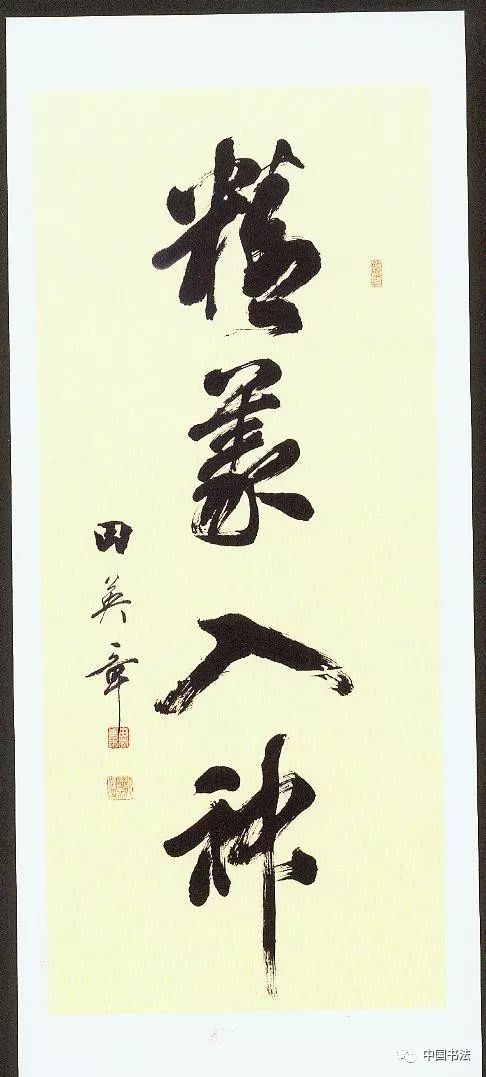 精義入神
田英章
中国书法